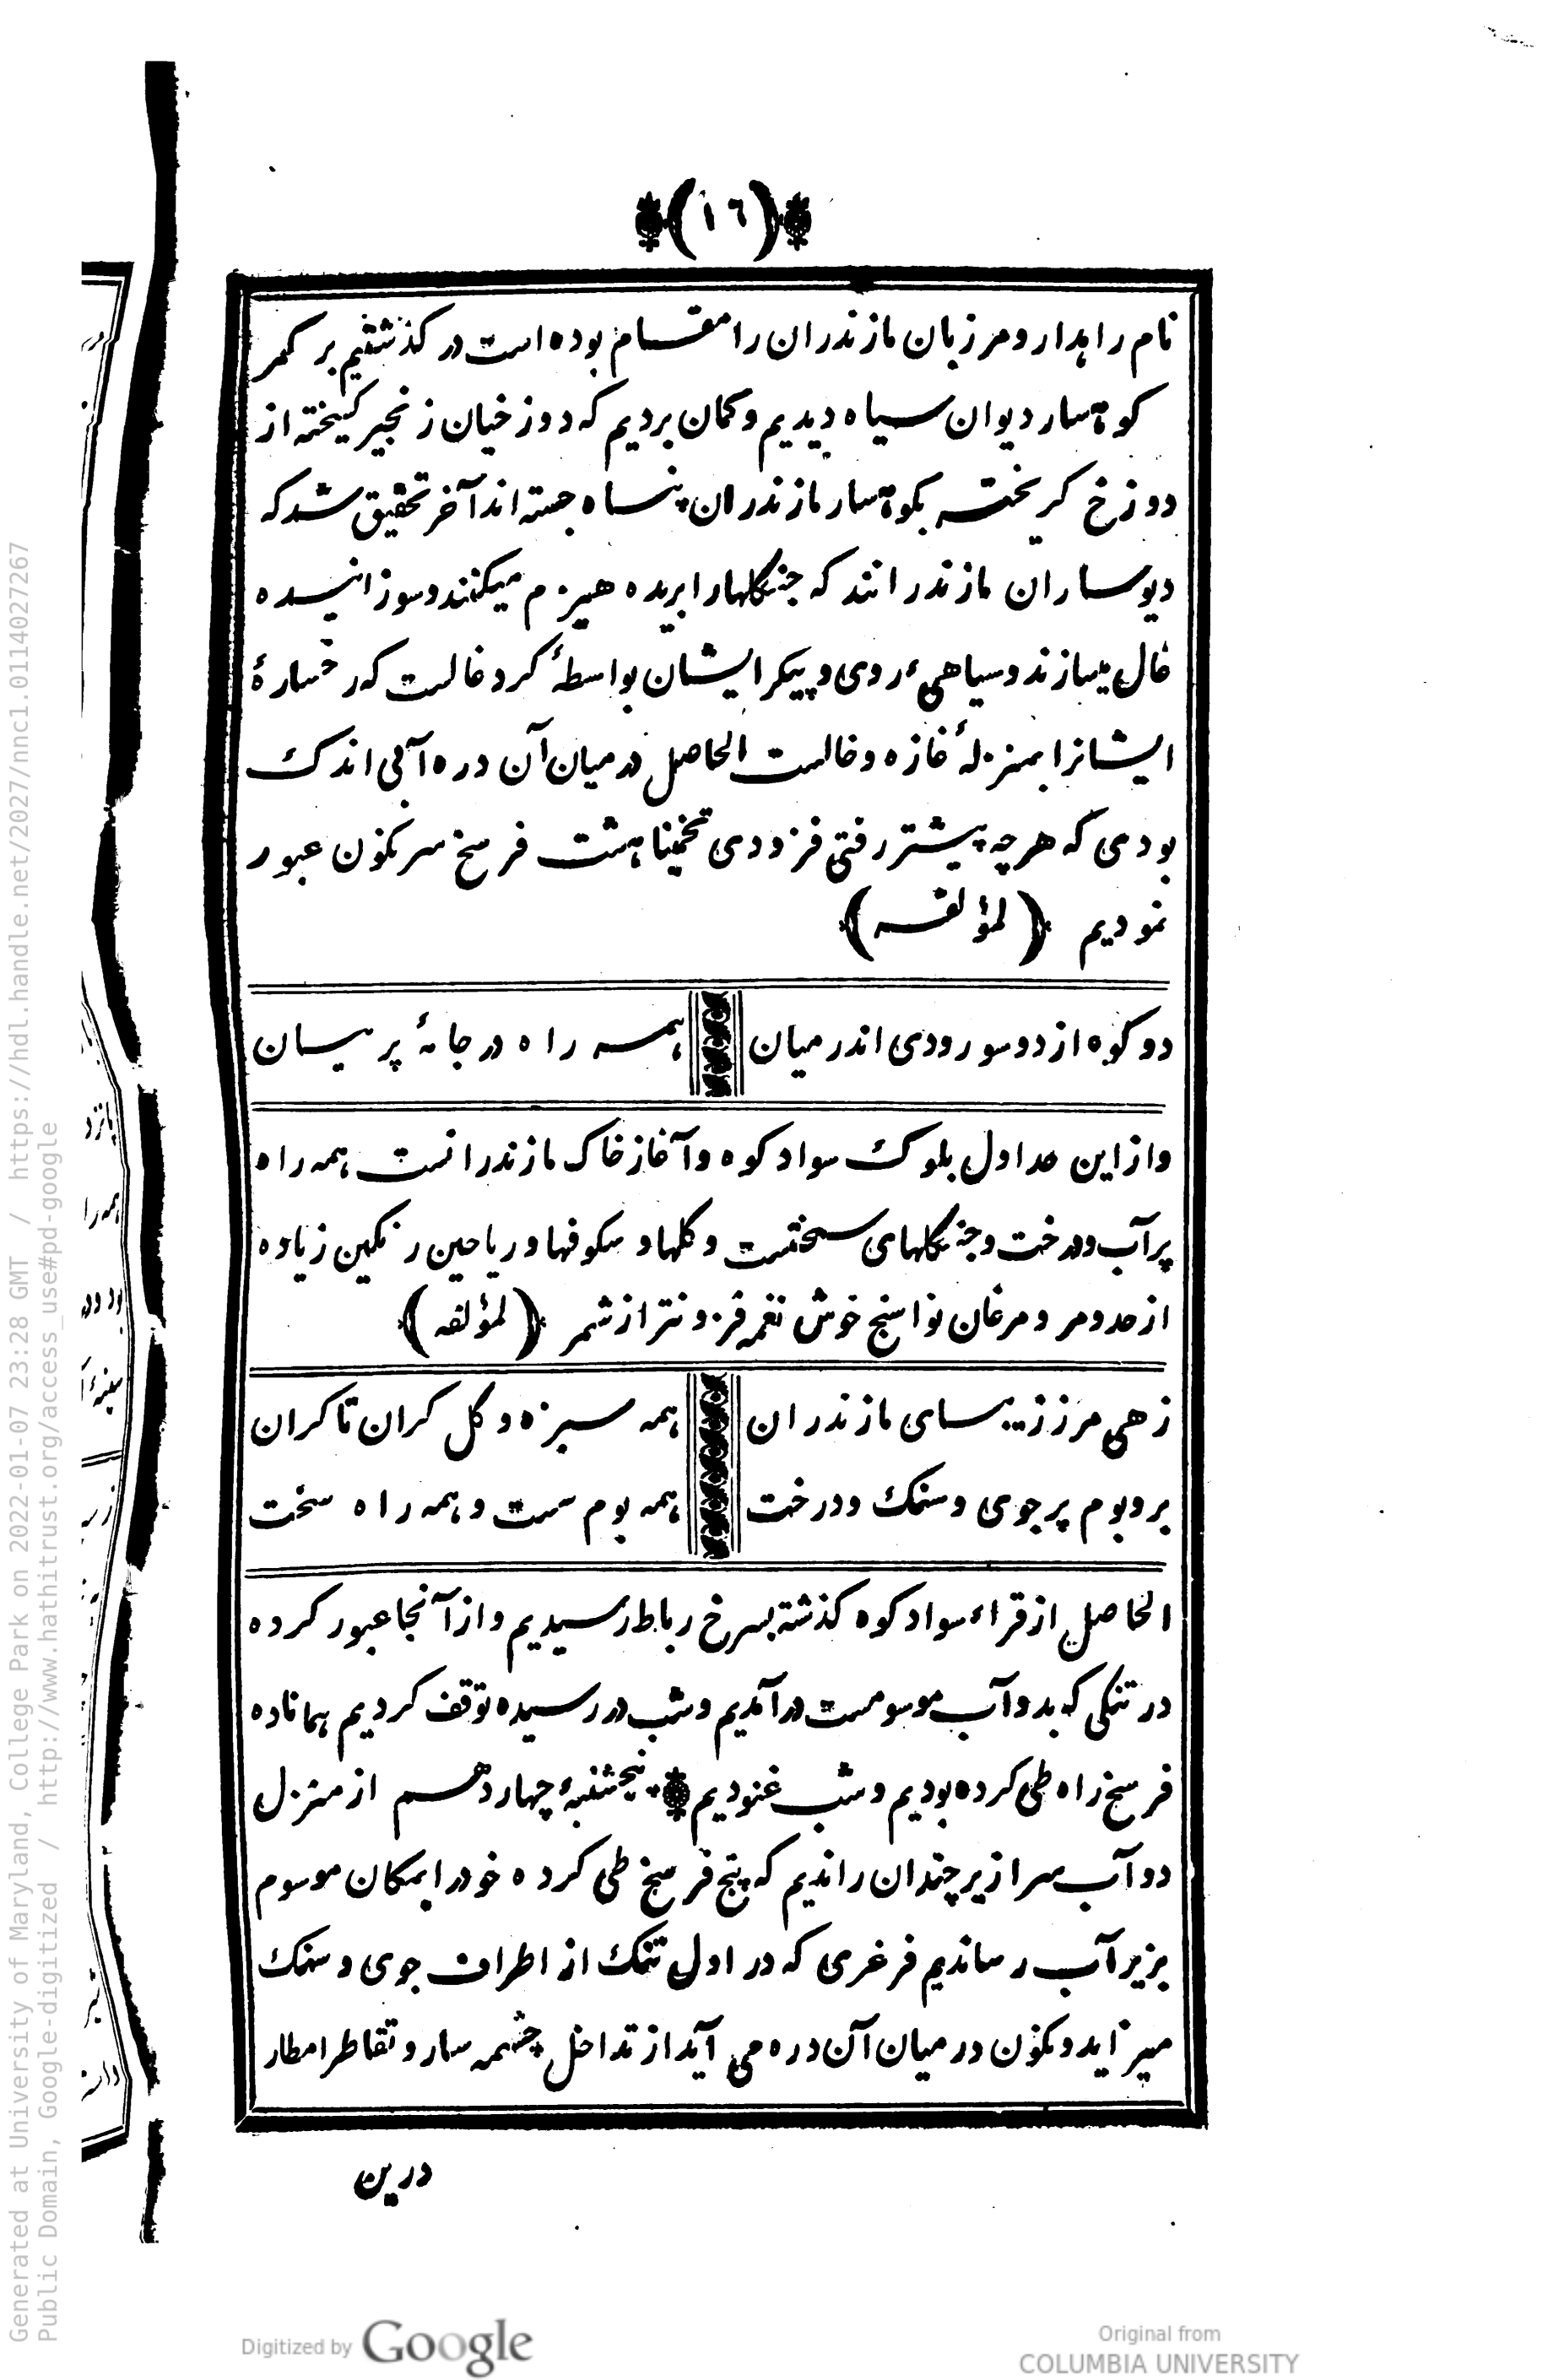 (١٦)
نام راهدار و مرزبان مازندران را مقام بوده است در کذشتیم بر کمر
کوهسار دیوان سیاه دیدیم و کمان بردیم که دوزخیان زنجیر کسیخته از
دوزخ کریخته بکوهسار مازندران پناه جسته اند آخر تحقیق شد که
دیوساران مازندرانند که جنکلها را بریده هیزم میکنند و سوزانیده
غال میسازند و سیاهیء روی و پیکر ایشان بواسطهٔ کرد غالست که رخسارهٔ
ایشانرا بمنزلهٔ غازه و خالست الحاصل در میان آن دره آبی اندک
بودی که هرچه پیشتر رفتی فزودی تخمینا هشت فرسخ سرنکون عبور
نمودیم (لمؤلفه)
دو کوه از دو سو رودی اندر میان همه راه در جامهٔ پرنیان
و از این حد اول بلوک سواد کوه و آغاز خاک مازندرانست همه راه
پر آب و درخت و جنکلهای سختست و کلها و شکوفها و ریاحین رنکین زیاده
از حد و مر و مرغان نوا سنج خوش نغمه فزونتر از شمر (لمؤلفه)
زهی مرز زیبسای مازندران همه سبزه و کل کران تا کران
بر و بوم پر جوی و سنک و درخت همه بوم سست و همه راه سخت
الحاصل از قراء سواد کوه کذشته بسرخ رباط رسیدیم و از آنجا عبور کرده
در تنکی که بدوآب موسومست در آمدیم و شب در رسیده توقف کردیم همانا ده
فرسخ راه طی کرده بودیم و شب غنودیم پنجشنبهٔ چهاردهم از منزل
دوآب سرازیر چندان راندیم که پنج فرسخ طی کرده خود را بمکان موسوم
بزیرآب رساندیم فرغری که در اول تنک از اطراف جوی و سنک
میزاید و نکون در میان آن دره می آید از تداخل چشمه سار و تقاطر امطار
درین
Generated at University of Maryland, College Park on 2022-01-07 23:28 GMT / https://hdl.handle.net/2027/nnc1.0114027267
Public Domain, Google-digitized / http://www.hathitrust.org/access_use#pd-google
Digitized by Google
Original from
COLUMBIA UNIVERSITY